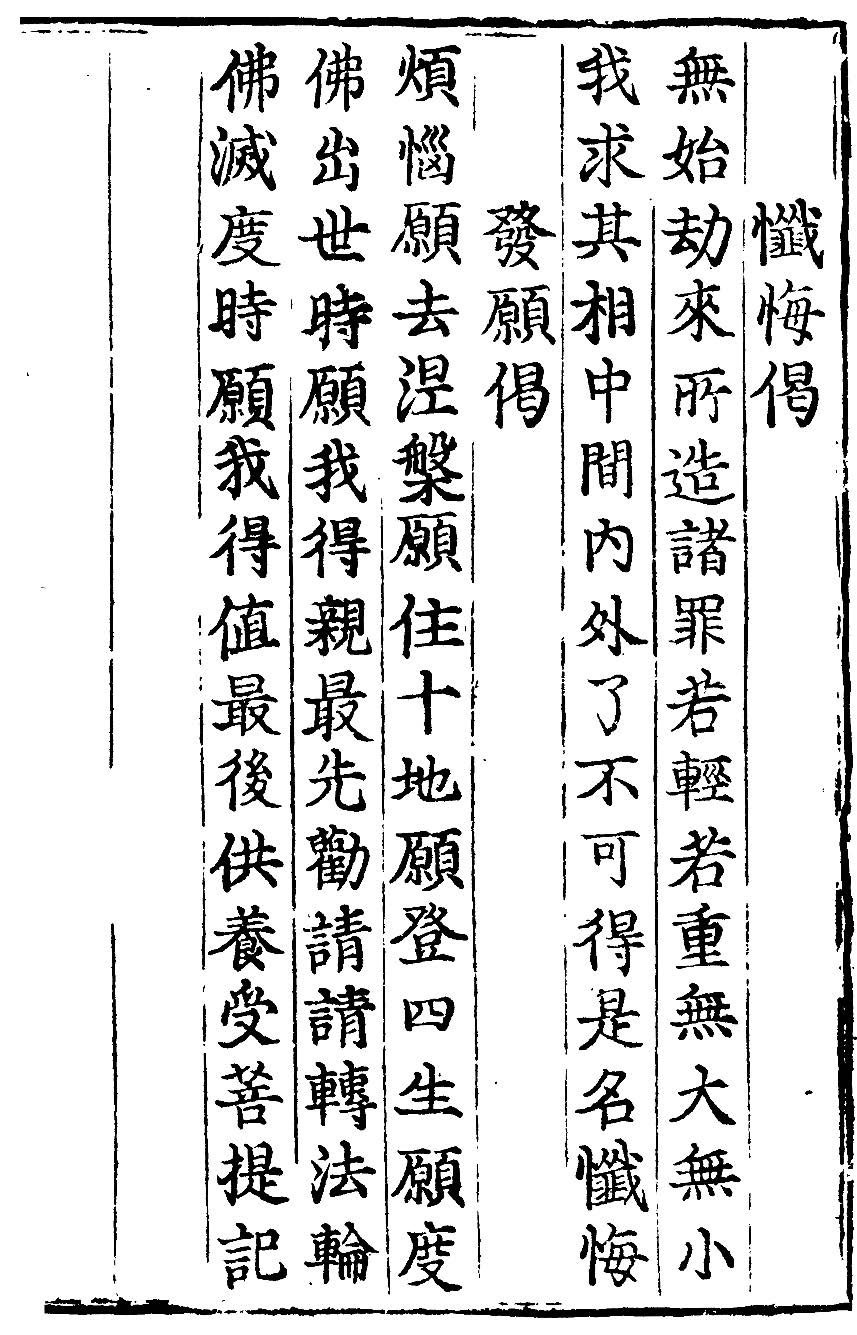 懺悔偈
無始劫來所造諸罪若輕若重無大無小
我求其相中間內外了不可得是名懺悔
發願偈
煩惱願去涅槃願住十地願登四生願度
佛出世時願我得親最先勸請請轉法輪
佛滅度時願我得值最後供養受菩提記